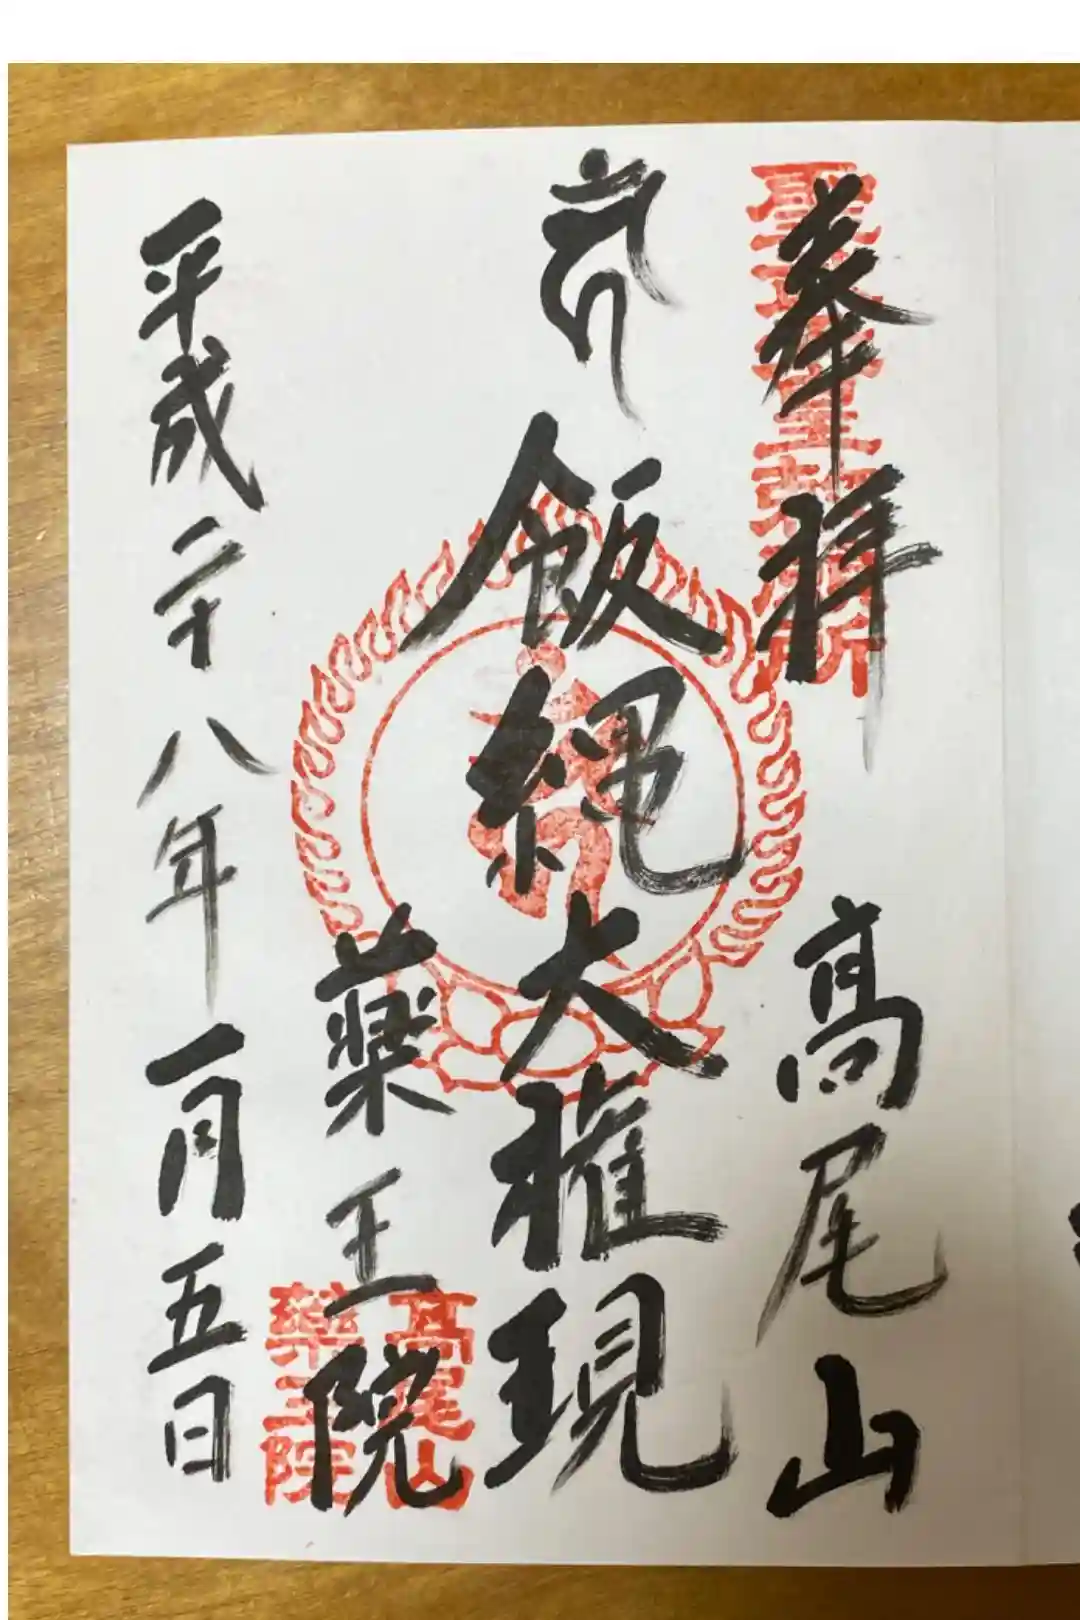 奉拝
髙尾山
飯縄大権現
薬王院
平成二十八年一月五日
髙尾山
薬王院